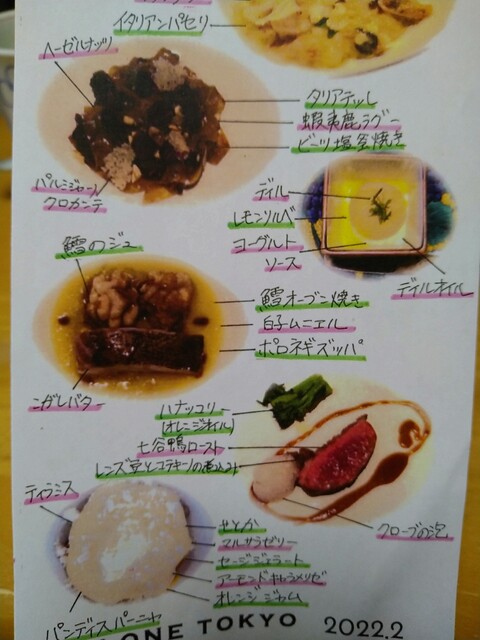 イタリアンパセリ
ヘーゼルナッツ
タリアテッレ
蝦夷鹿ラグー
ビーツ塩釜焼き
パルミジャーノ
クロカンテ
ディル
レモンソルベ
ヨーグルト
ソース
ディルオイル
鱈のジュ
鱈オーブン焼き
白子ムニエル
ポロネギズッパ
こがしバター
ハナッコリー
(オレンジオイル)
七谷鴨ロースト
レンズ豆とコテキーノの煮込み
クローブの泡
ティラミス
せとか
マルサラゼリー
セージジェラート
アーモンドキャラメリゼ
オレンジジャム
パンディスパーニャ
ONE TOKYO 2022.2